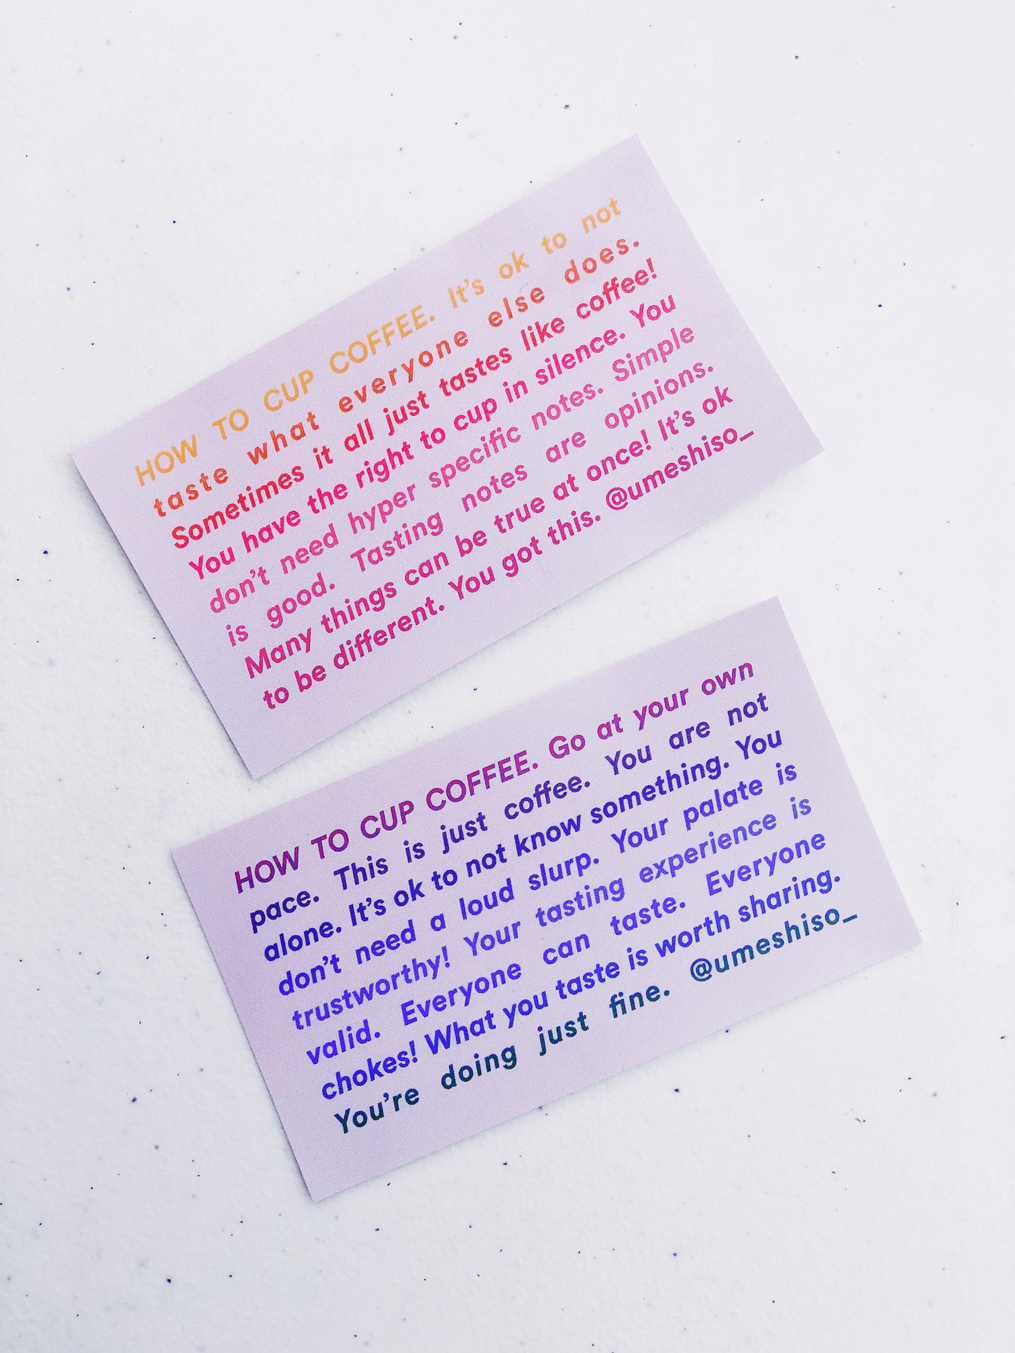 HOW TO CUP COFFEE. It's ok to not
taste what everyone else does.
Sometimes it all just tastes like coffee!
You have the right to cup in silence. You
don't need hyper specific notes. Simple
is good. Tasting notes are opinions.
Many things can be true at once! It's ok
to be different. You got this. @umeshiso_
HOW TO CUP COFFEE. Go at your own
pace. This is just coffee. You are not
alone. It's ok to not know something. You
don't need a loud slurp. Your palate is
trustworthy! Your tasting experience is
valid. Everyone can taste. Everyone
chokes! What you taste is worth sharing.
You're doing just fine. @umeshiso_